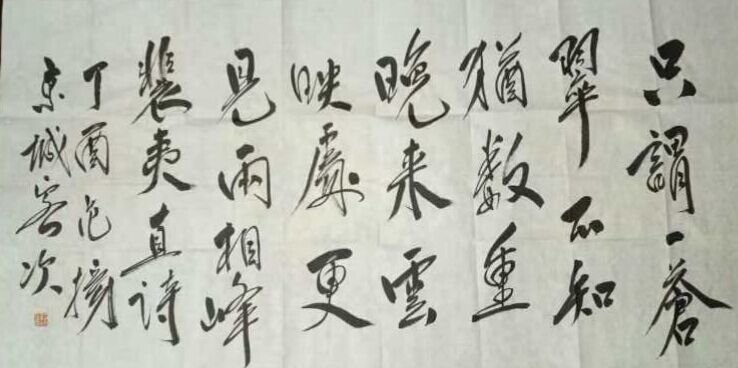 只謂一蒼
翠不知
猶數重
晚来雲
映處更
見兩相峰
裴夷直诗
丁酉范揚
京城客次